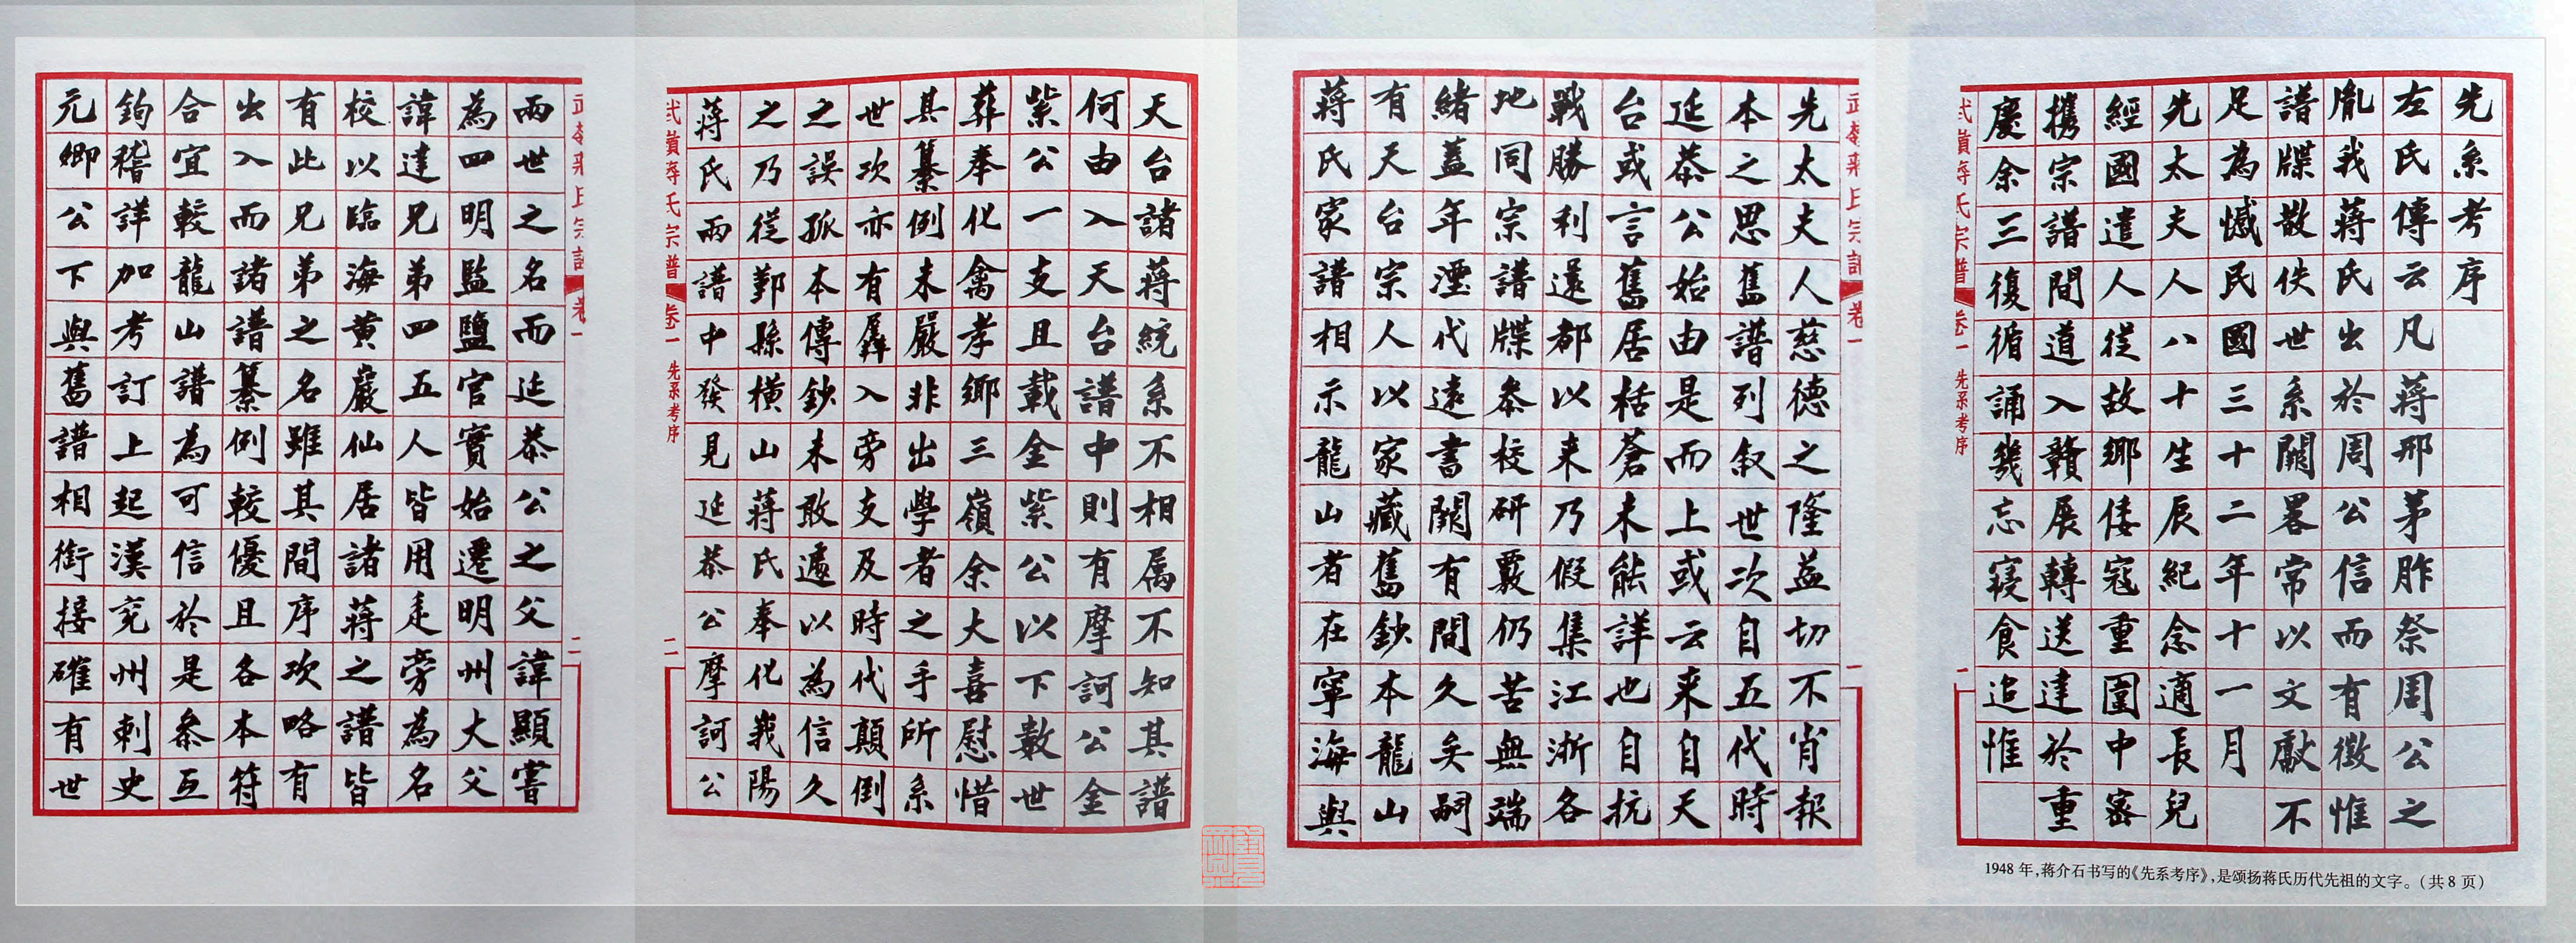 先系考序
左氏傳云凡蔣邢茅胙祭周公之
胤我蔣氏出於周公信而有徵惟
譜牒散佚世系闕畧常以文獻不
足為憾民國三十二年十一月
先太夫人八十生辰紀念適長兒
經國遣人從故鄉倭寇重圍中密
攜宗譜間道入贛展轉送達於重
慶余三復循誦幾忘寢食追惟
武嶺蔣氏宗譜 卷一 先系考序 一
武嶺蔣氏宗譜 卷一 一
先太夫人慈德之隆益切不肖報
本之思舊譜列叙世次自五代時
延恭公始由是而上或云来自天
台或言舊居栝蒼未能詳也自抗
戰勝利還都以来乃假集江浙各
地同宗譜牒叅校研覈仍苦無端
緒蓋年湮代遠書闕有間久矣嗣
有天台宗人以家藏舊鈔本龍山
蔣氏家譜相示龍山者在寧海與
天台諸蔣統系不相属不知其譜
何由入天台譜中則有摩訶公金
紫公一支且載金紫公以下數世
葬奉化禽孝鄉三嶺余大喜慰惜
其纂例未嚴非出學者之手所系
世次亦有羼入旁支及時代顛倒
之誤孤本傳鈔未敢遽以為信久
之乃從鄞縣橫山蔣氏奉化峩陽
蔣氏兩譜中發見延恭公摩訶公
武嶺蔣氏宗譜 卷一 先系考序 二
武嶺蔣氏宗譜 卷一 二
兩世之名而延恭公之父諱顯嘗
為四明監鹽官實始遷明州大父
諱達兄弟四五人皆用辵旁為名
校以臨海黃巖仙居諸蔣之譜皆
有此兄弟之名雖其間序次略有
出入而諸譜纂例較優且各本符
合宜較龍山譜為可信於是叅互
鉤稽詳加考訂上起漢兗州刺史
元卿公下與舊譜相銜接確有世
1948 年,蒋介石书写的《先系考序》,是颂扬蒋氏历代先祖的文字。(共 8 页)